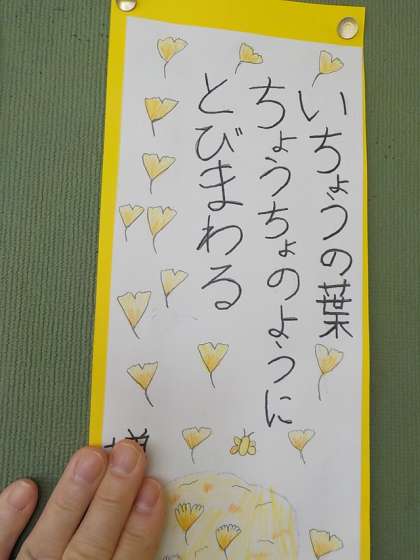 いちょうの葉
ちょうちょのように
とびまわる